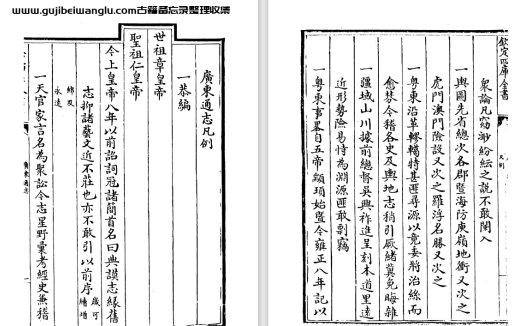 www.gujibeiwanglu.com古籍备忘录整理收集
廣東通志凡例
一恭編
世祖章皇帝
聖祖仁皇帝
今上皇帝八年以前詔詞冠諸簡首名曰典謨志緣舊
志抑諸藝文近不莊也亦不敢引以前序歲可續增
綿及永遠
一天官家言名為聚訟今志星野彙考經史兼稽
廣東通志
欽定四庫全書
衆論凡窈渺紛紜之說不敢闌入
一輿圖先省總次各郡暨海防庾嶺地衝又次之
虎門澳門險設又次之羅浮名勝又次之
一粤東沿革轇轕特甚匪尋源以竟委將治絲而
愈棼今稽名史及輿地志稍引厥緒冀免晦雜
一疆域山川據前總督吳興祚進呈刻本道里遠
近形勢險易恃為淵源匪敢剽竊
一粤東事畧自五帝顓頊始暨今雍正八年記以